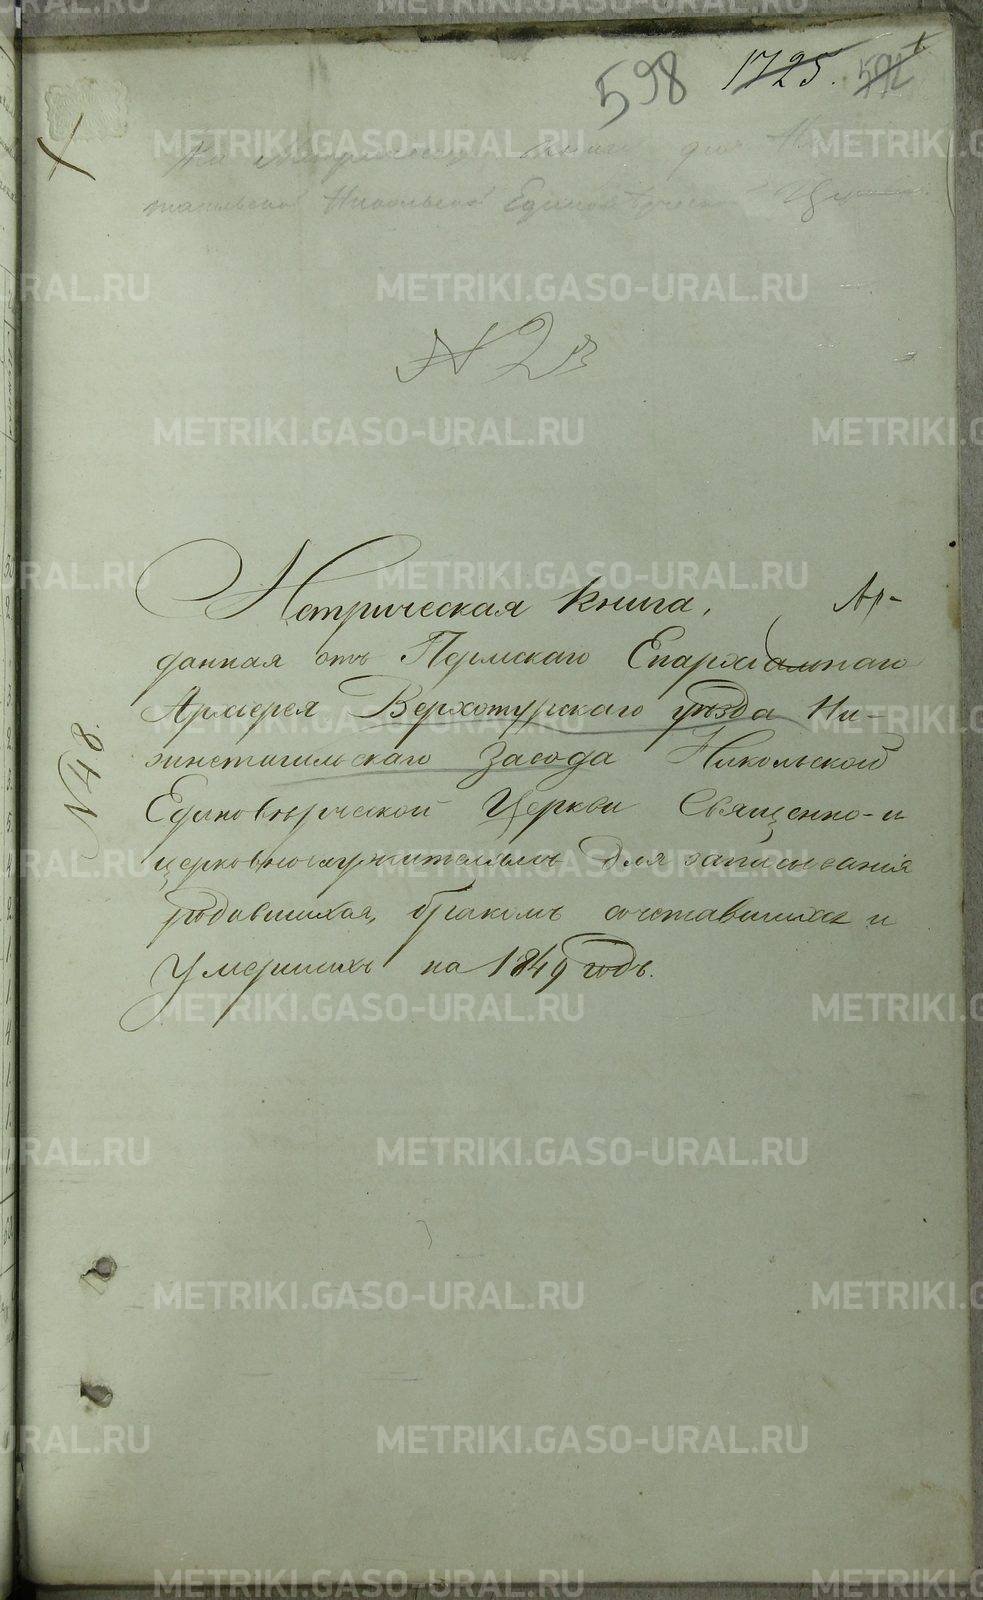 598 1725. 592
книги для
тагильской Никольской Единоверческой Це
№ 2
Метрическая книга, Ар-
данная отъ Пермскаго Епархіальнаго
Архіерея Верхотурскаго уѣзда Ни-
жнетагильскаго Завода Никольской
Единовѣрческой Церкви Священно-и
церковнослужителямъ для записыванія
родившихся, бракомъ сочетавшихся и
умершихъ на 1849 годъ.
№ 48.
METRIKI.GASO-URAL.RU